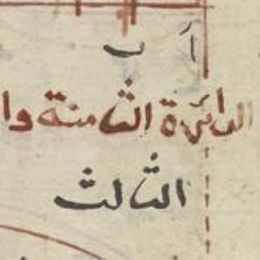 أ ب
الدائرة الثامنة وا
الثالث